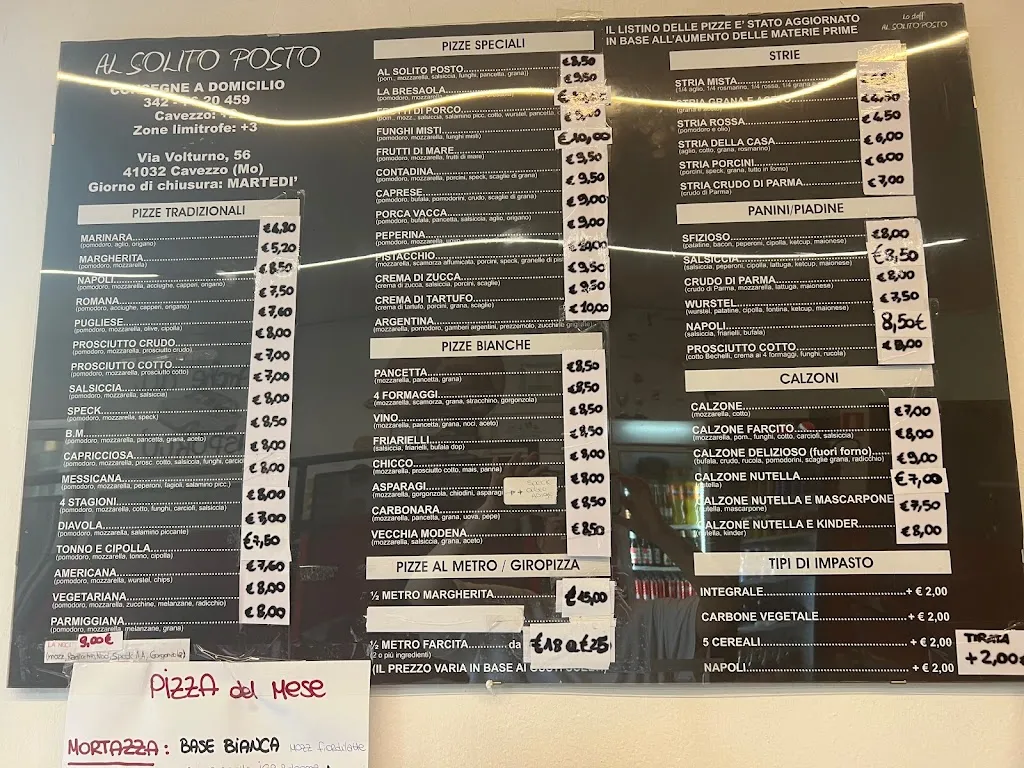 AL SOLITO POSTO
CONSEGNE A DOMICILIO
20 459
Cavezzo:
Zone limitrofe: +3
Via Volturno, 56
41032 Cavezzo (Mo)
Giorno di chiusura: MARTEDI'
PIZZE TRADIZIONALI
MARINARA €4,80
(pomodoro, aglio, origano)
MARGHERITA €5,20
(pomodoro, mozzarella)
NAPOLI €8,50
(pomodoro, mozzarella, acciughe, capperi, origano)
ROMANA €7,50
(pomodoro, acciughe, capperi, origano)
PUGLIESE €7,60
(pomodoro, mozzarella, olive, cipolla)
PROSCIUTTO CRUDO €8,00
(pomodoro, mozzarella, prosciutto crudo)
PROSCIUTTO COTTO €7,00
(pomodoro, mozzarella, prosciutto cotto)
SALSICCIA €7,00
(pomodoro, mozzarella, salsiccia)
SPECK €8,00
(pomodoro, mozzarella, speck)
B.M €8,50
(pomodoro, mozzarella, pancetta, grana, aceto)
CAPRICCIOSA €8,00
(pomodoro, mozzarella, prosc. cotto, salsiccia, funghi, carciofi)
MESSICANA €8,00
(pomodoro, mozzarella, peperoni, fagioli, salamino picc.)
4 STAGIONI €8,00
(pomodoro, mozzarella, cotto, funghi, carciofi, salsiccia)
DIAVOLA
(pomodoro, mozzarella, salamino piccante)
TONNO E CIPOLLA
(pomodoro, mozzarella, tonno, cipolla)
AMERICANA €7,60
(pomodoro, mozzarella, wurstel, chips)
VEGETARIANA €8,00
(pomodoro, mozzarella, zucchine, melanzane, radicchio)
PARMIGGIANA €8,00
(pomodoro, mozzarella, melanzane, grana)
LA NOCI 9,00€
PIZZA del MESE
MORTAZZA: BASE BIANCA MOZZ fiordilatte
PIZZE SPECIALI
AL SOLITO POSTO €8,50
(pom., mozzarella, salsiccia, funghi, pancetta, grana)
LA BRESAOLA €9,50
DI PORCO
FUNGHI MISTI €10,00
(pomodoro, mozzarella, funghi misti)
FRUTTI DI MARE €9,50
(pomodoro, mozzarella, frutti di mare)
CONTADINA €9,50
(pomodoro, mozzarella, porcini, speck, scaglie di grana)
CAPRESE €9,00
(pomodoro, bufala, pomodorini, crudo, scaglie di grana)
PORCA VACCA €9,00
(pomodoro, bufala, pancetta, salsiccia, aglio, origano)
PEPERINA
PISTACCHIO €9,50
(mozzarella, scamorza affumicata, porcini, speck, granelle di
CREMA DI ZUCCA €9,50
(crema di zucca, salsiccia, porcini, scaglie)
CREMA DI TARTUFO €10,00
(crema di tartufo, porcini, grana, scaglie)
ARGENTINA
(mozzarella, pomodoro, gamberi argentini, prezzemolo, zucchine grigliate)
PIZZE BIANCHE
PANCETTA €8,50
(mozzarella, pancetta, grana)
4 FORMAGGI €8,50
(mozzarella, scamorza, grana, stracchino, gorgonzola)
VINO €8,50
(mozzarella, pancetta, grana, noci, aceto)
FRIARIELLI €8,50
(salsiccia, friarielli, bufala dop)
CHICCO €8,00
(mozzarella, prosciutto cotto, mais, panna)
ASPARAGI €8,00
(mozzarella, gorgonzola, chiodini, asparagi
CARBONARA €8,50
(mozzarella, pancetta, grana, uova, pepe)
VECCHIA MODENA €8,50
(mozzarella, salsiccia, grana, aceto)
PIZZE AL METRO / GIROPIZZA
½ METRO MARGHERITA €15,00
½ METRO FARCITA da €18 a €25
(2 o più ingredienti)
(IL PREZZO VARIA IN BASE AI
IL LISTINO DELLE PIZZE E' STATO AGGIORNATO
IN BASE ALL'AUMENTO DELLE MATERIE PRIME
Lo staff
AL SOLITO POSTO
STRIE
STRIA MISTA
(1/4 aglio, 1/4 rosmarino, 1/4 rossa, 1/4 grana
STRIA GRANA E €4,50
STRIA ROSSA €4,50
(pomodoro e olio)
STRIA DELLA CASA €6,00
(aglio, cotto, grana, rosmarino)
STRIA PORCINI €6,00
(porcini, speck, grana, tutto in forno)
STRIA CRUDO DI PARMA €7,00
(crudo di Parma)
PANINI/PIADINE
SFIZIOSO €8,00
(patatine, bacon, peperoni, cipolla, ketcup, maionese)
SALSICCIA €8,50
(salsiccia, peperoni, cipolla, lattuga, ketcup, maionese)
CRUDO DI PARMA €8,00
(crudo di Parma, mozzarella, lattuga, maionese)
WURSTEL €7,50
(wurstel, patatine, cipolla, fontina, ketcup, maionese)
NAPOLI 8,50€
(salsiccia, friarielli, bufala)
PROSCIUTTO COTTO €8,00
(cotto Bechelli, crema ai 4 formaggi, funghi, rucola)
CALZONI
CALZONE €7,00
(mozzarella, cotto)
CALZONE FARCITO €8,00
(mozzarella, pom., funghi, cotto, carciofi, salsiccia)
CALZONE DELIZIOSO (fuori forno) €9,00
(bufala, crudo, rucola, pomodorini, scaglie grana, radicchio)
CALZONE NUTELLA €7,00
CALZONE NUTELLA E MASCARPONE €7,50
(nutella, mascarpone)
CALZONE NUTELLA E KINDER €8,00
(nutella, kinder)
TIPI DI IMPASTO
INTEGRALE + € 2,00
CARBONE VEGETALE + € 2,00
5 CEREALI + € 2,00
NAPOLI + € 2,00
TIRATA
+2,00€